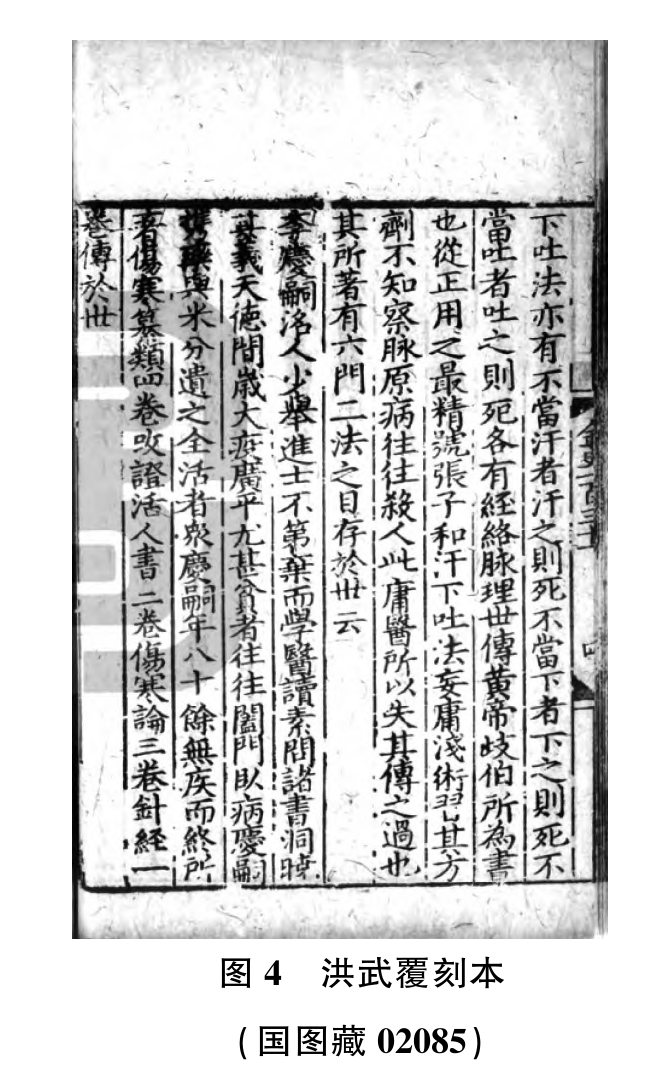 下吐法亦有不當汗者汗之則死不當下者下之則死不
當吐者吐之則死各有經絡脉理世傳黄帝岐伯所為書
也從正用之最精號張子和汗下吐法妄庸淺術習其方
劑不知察脉原病往往殺人此庸醫所以失其傳之過也
其所著有六門二法之目存於世云
李慶嗣洺人少舉進士不第棄而學醫讀素問諸書洞曉
其義天德間歲大疫廣平尤甚貧者往往闔門臥病慶嗣
携藥與米分遺之全活者衆慶嗣年八十餘無疾而終所
著傷寒纂類四卷攷證活人書二卷傷寒論三卷針經一
卷傳於世
金史一百三十一
四
图 4 洪武覆刻本
(国图藏 02085)